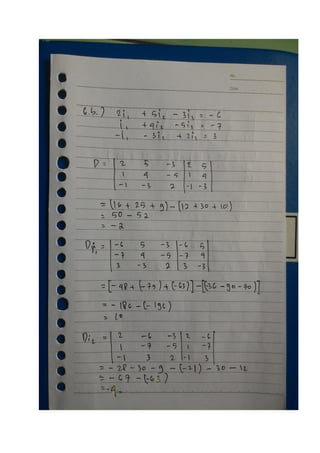 No.
Date
6.b.) 2i₁ + 5i₂ - 3i₃ = -6
i₁ + 4i₂ - 5i₃ = -7
-i₁ - 3i₂ + 2i₃ = 3
D = | 2 5 -3 | 2 5
| 1 4 -5 | 1 4
| -1 -3 2 | -1 -3
= (16 + 25 + 9) - (12 + 30 + 10)
= 50 - 52
= -2
Di₁ = | -6 5 -3 | -6 5
| -7 4 -5 | -7 4
| 3 -3 2 | 3 -3
= [-48 + (-75) + (-63)] - [(-36 - 90 - 70)]
= -186 + (-196)
= 10
Di₂ = | 2 -6 -3 | 2 -6
| 1 -7 -5 | 1 -7
| -1 3 2 | -1 3
= -28 - 30 - 9 - (-21) - 30 - 12
= -67 - (-63)
= -4